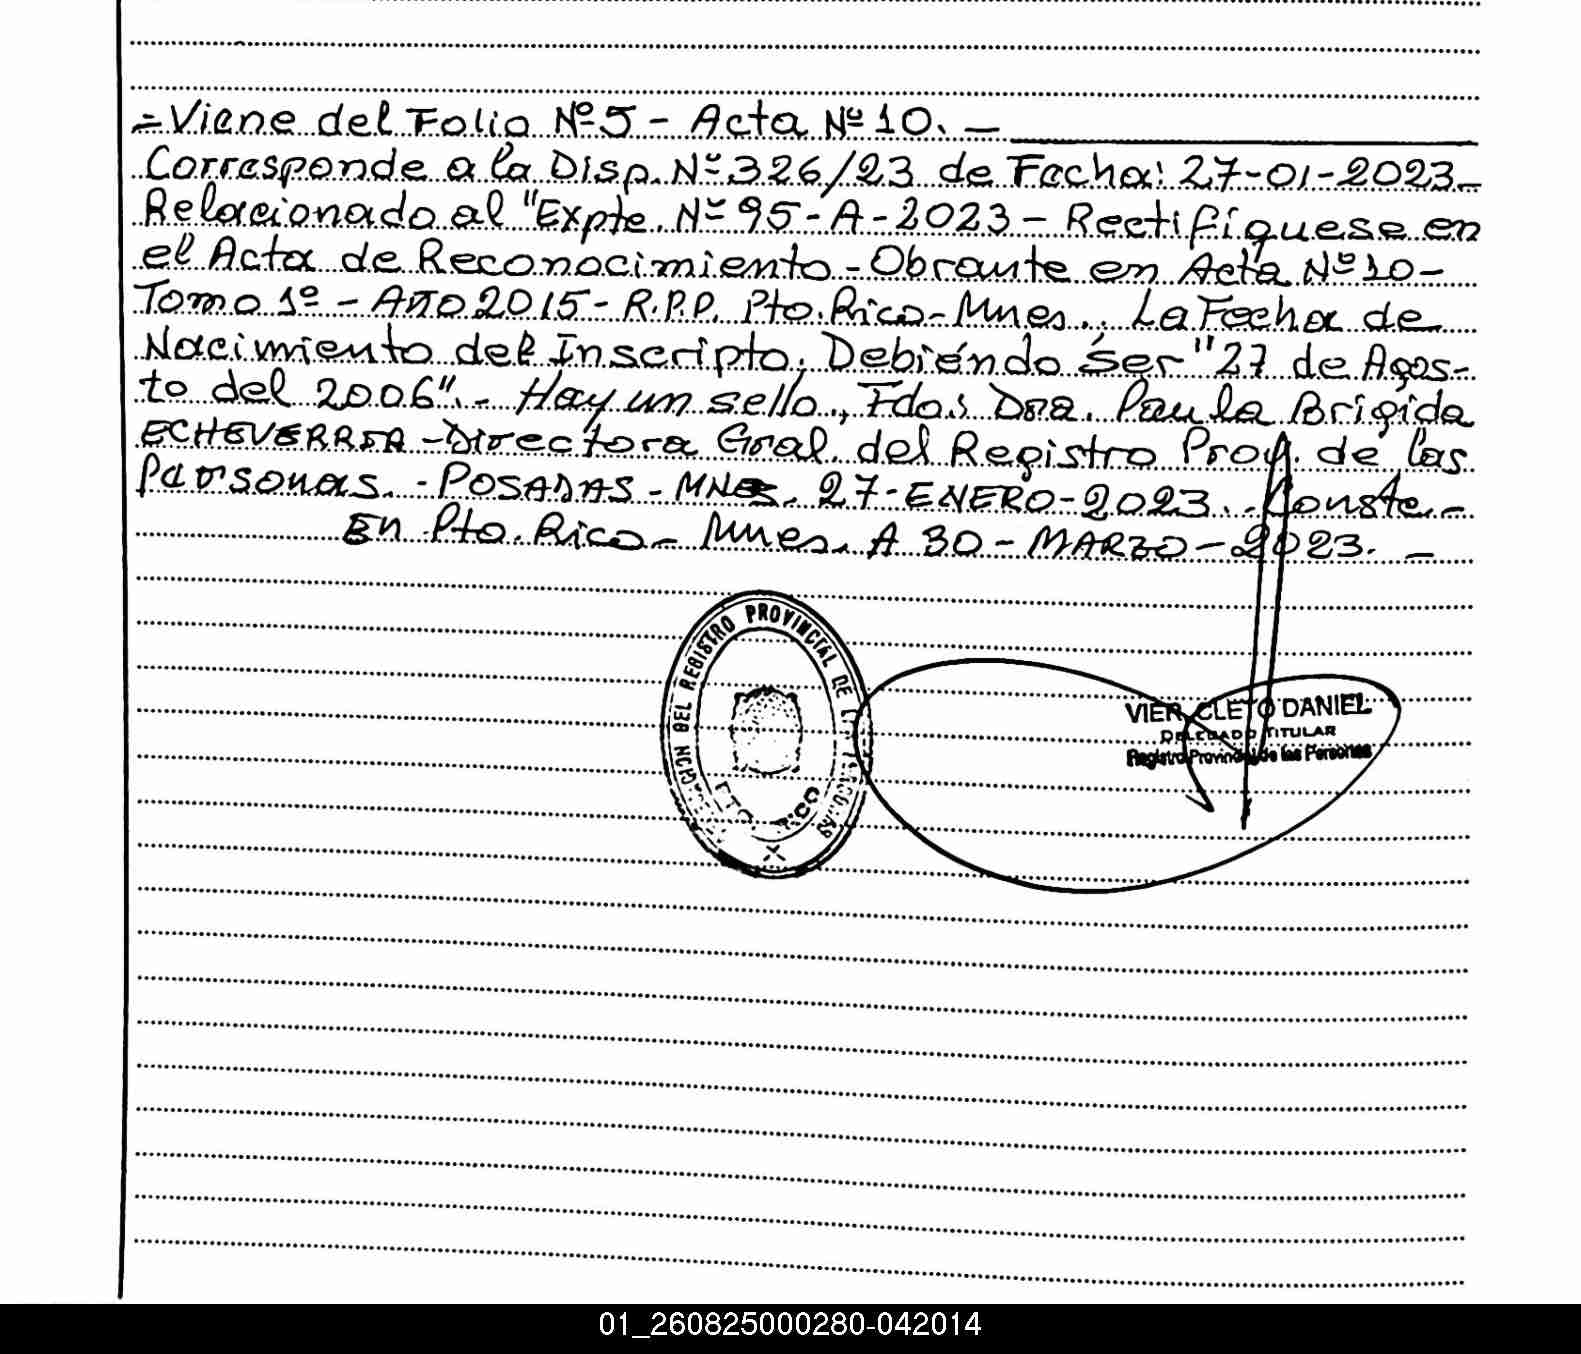 = Viene del Folio Nº 5 - Acta Nº 10. -
Corresponde a la Disp. Nº 326/23 de Fecha: 27-01-2023 -
Relacionado al "Expte. Nº 95-A-2023 - Rectifíquese en
el Acta de Reconocimiento - Obrante en Acta Nº 10 -
Tomo 1º - Año 2015 - R.P.P. Pto. Rico - Mnes., La Fecha de
Nacimiento del Inscripto, Debiéndo ser "27 de Agos-
to del 2006". - Hay un sello, Fdo: Dra. Paula Brigida
ECHEVERRIA - Directora Gral. del Registro Prov. de las
Personas. - POSADAS - MNES. 27 - ENERO - 2023. - Conste. -
En Pto. Rico - Mnes. A 30 - MARZO - 2023. -
DEL REGISTRO PROVINCIAL DE PERSONAS
PTO. RICO
VIER, CLETO DANIEL
DELEGADO TITULAR
Registro Provincial de las Personas
01_260825000280-042014